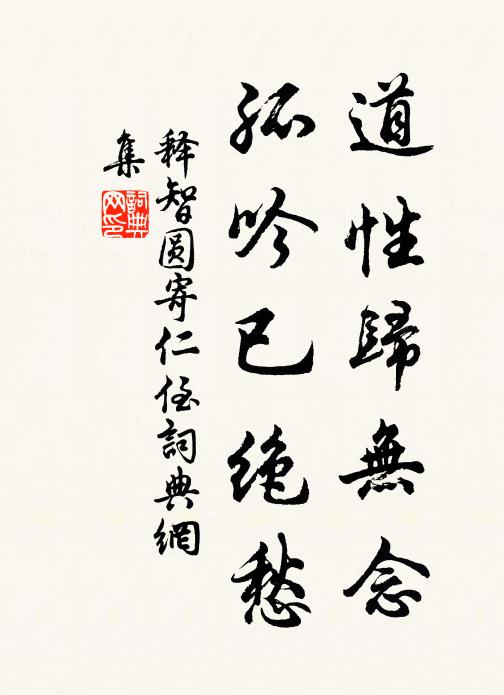 道性歸無念
孤吟已絶愁
释智圓寄仁侄詞典網
集
詞典
网印